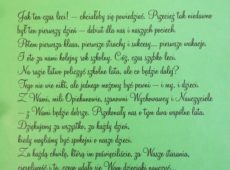 Jak ten czas leci! – chciałoby się powiedzieć. Przecież tak niedawno
był ten pierwszy dzień – debiut dla nas i naszych pociech.
Potem pierwsza klasa, pierwsze strachy i sukcesy... pierwsze wakacje.
I oto za nami kolejny rok szkolny. Cóż, czas szybko leci.
No razie latem policzyć szkolne lata, ale co będzie dalej?
Tego nie wie nikt, ale jednego możemy być pewni – i my, i dzieci.
Z Wami, mili Opiekunowie, szanowni Wychowawcy i Nauczyciele
– z Wami będzie dobrze. Przekonały nas o tym dwa wspólne lata.
Dziękujemy za wszystko, za każdy dzień,
kiedy mogliśmy być spokojni o nasze dzieci.
Za każdą chwilę, którą im poświęciliście, za Wasze starania,
cierpliwość i to, czego udało się Wam dzieciaki nauczyć.